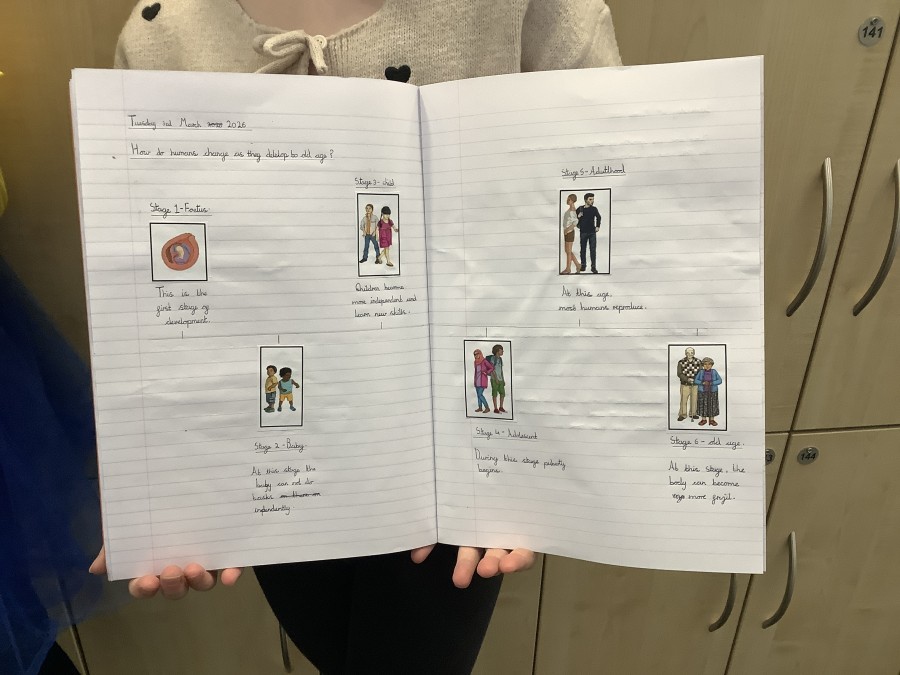 Tuesday 3rd March 2026
How do humans change as they develop to old age?
Stage 1-Foetus
This is the
first stage of
development.
Stage 2 - Baby
At this stage the
baby can not do
tasks on them on
independently.
Stage 3- child
Children become
more independent and
learn new skills.
Stage 4 - Adolescent
During this stage puberty
begins.
Stage 5- Adulthood
At this age,
most humans reproduce.
Stage 6 - old age.
At this stage, the
body can become
more frajil.
141
144